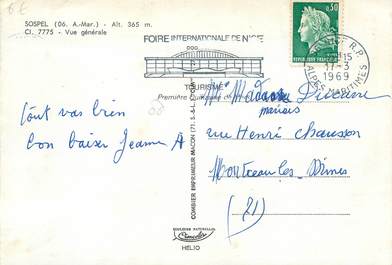 SOSPEL (06. A.-Mar.) - Alt. 365 m.
Cl. 7775 - Vue générale
FOIRE INTERNATIONALE DE NICE
TOURISME
Première quinzaine
0,30
REPUBLIQUE FRANÇAISE
R.P.
17-3
1969
ALPES MARITIMES
COMBIER IMPRIMEUR MACON
Tout vas bien
bon baiser Jeanne A
rue Henri Chausson
Montceau les Mines
(71)
HELIO